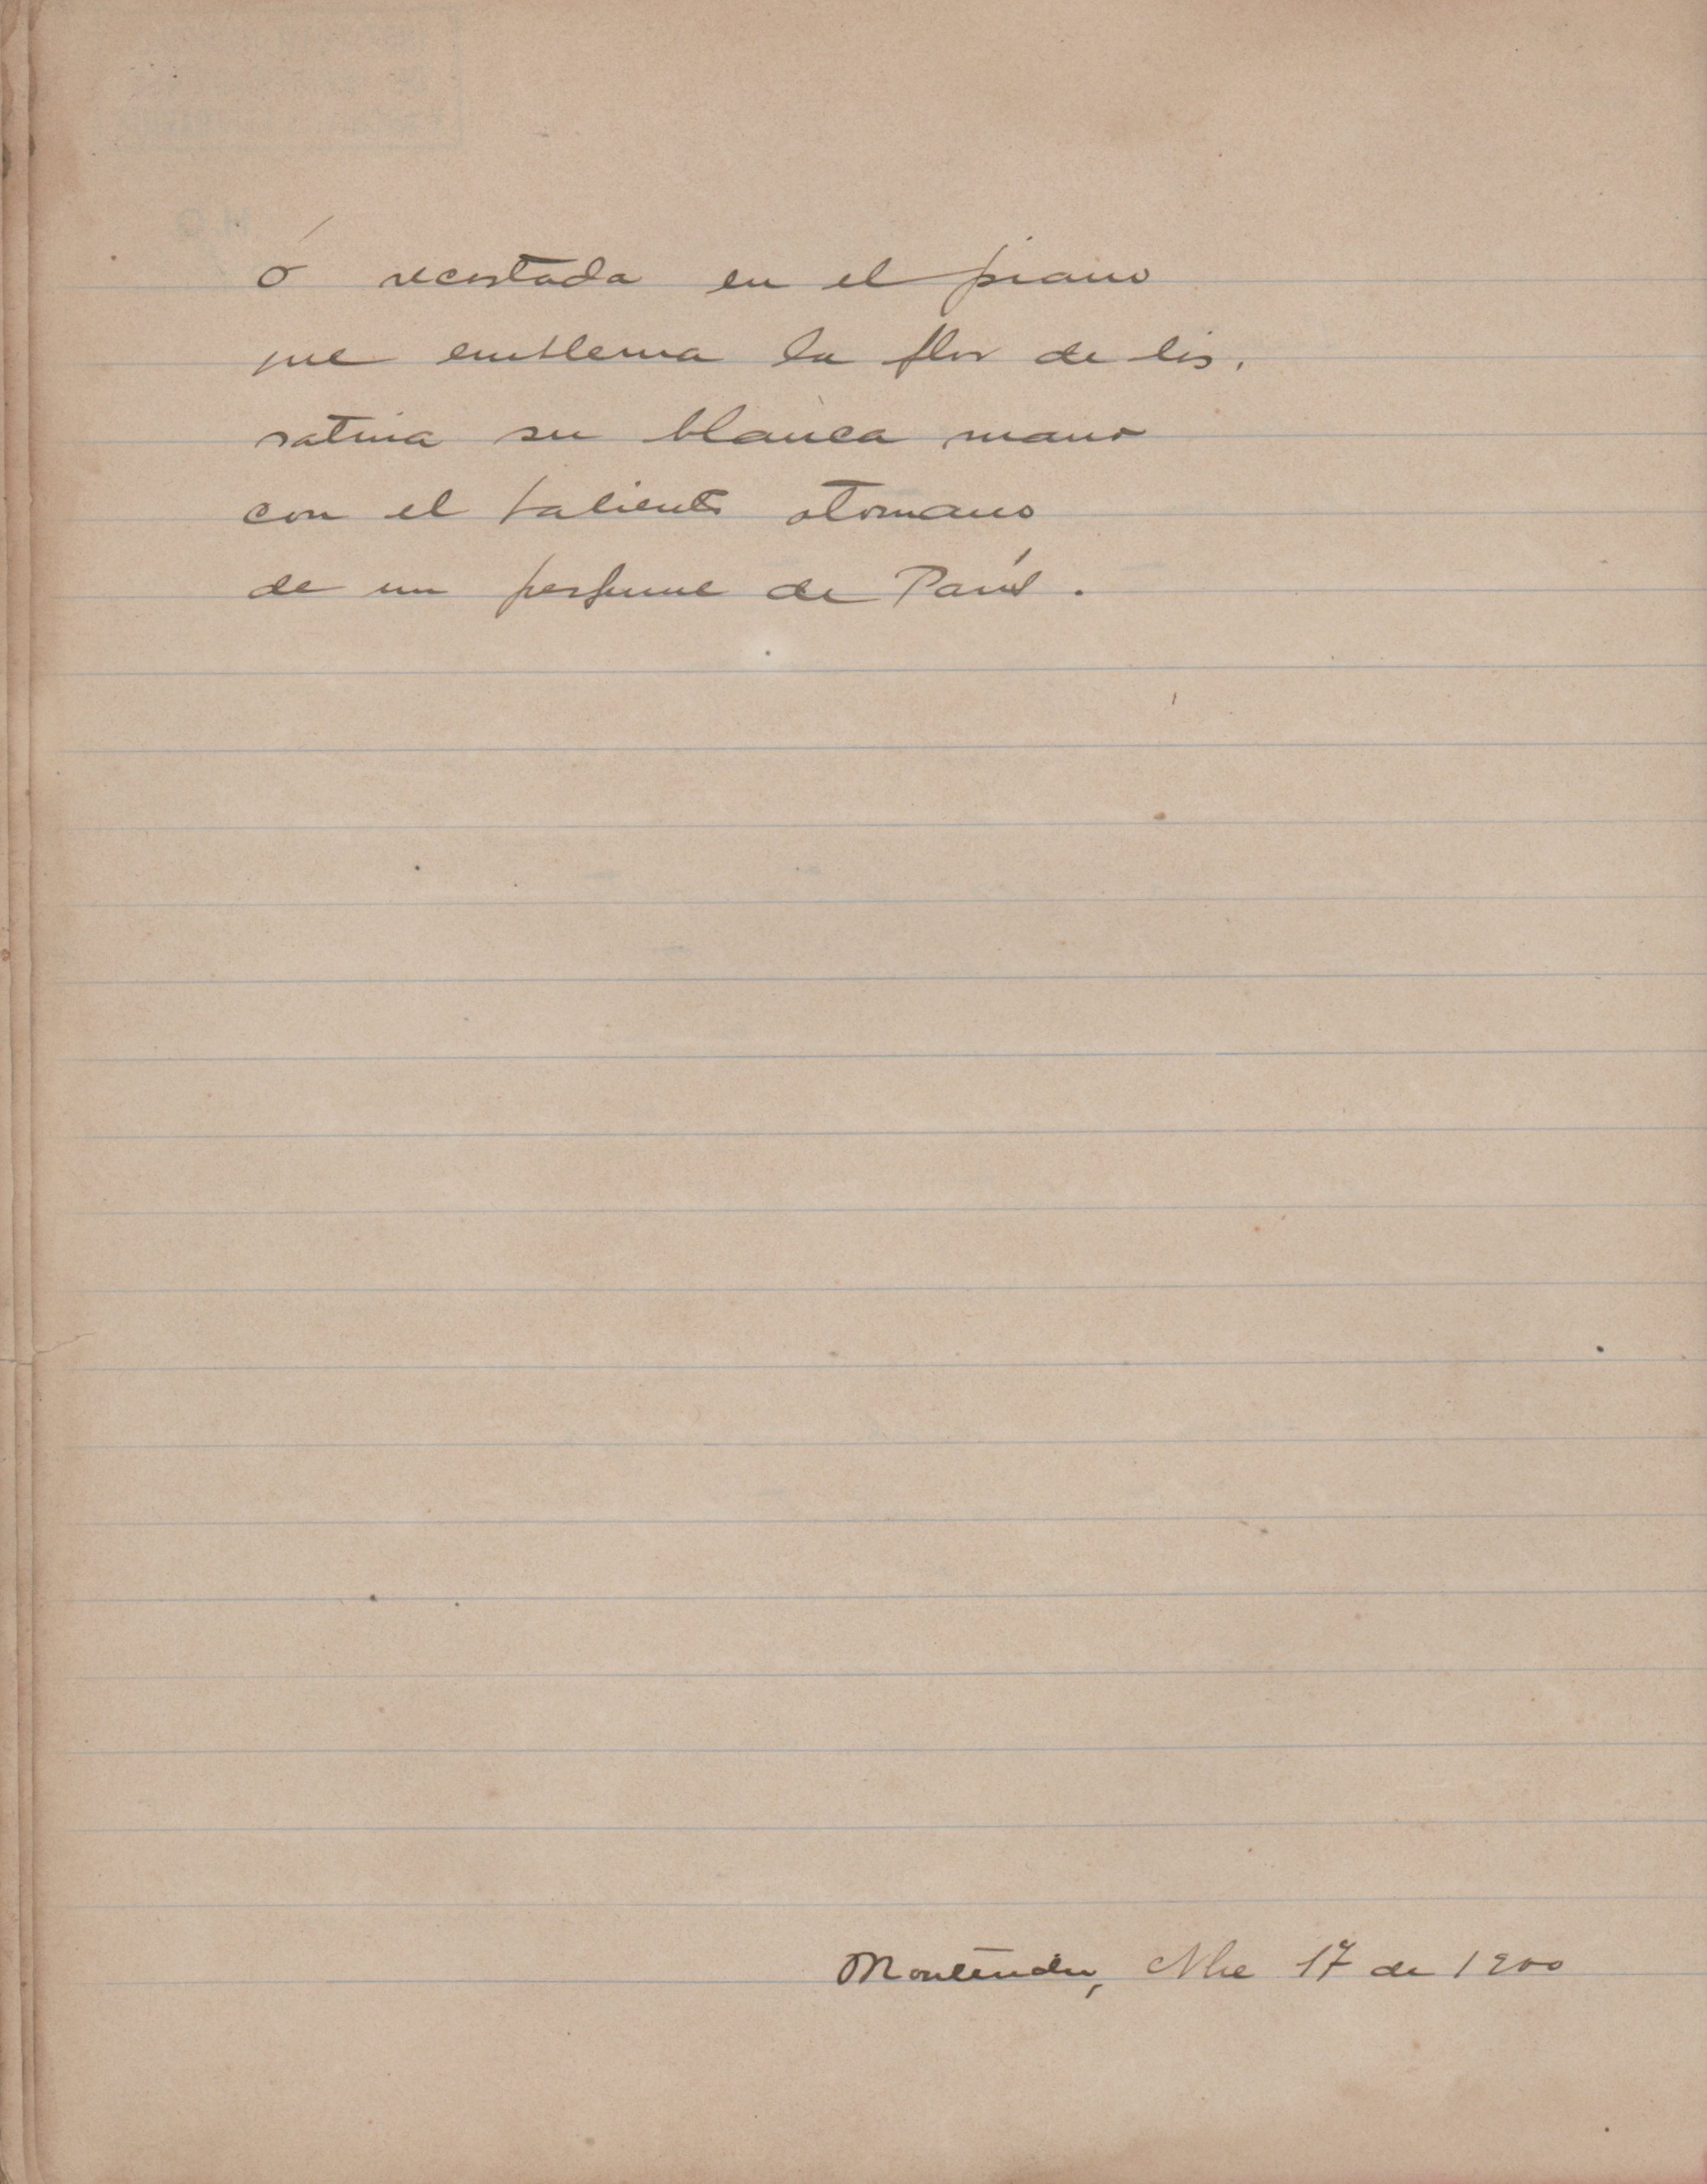 ó recostada en el piano
que emblema la flor de lis,
satina su blanca mano
con el otomano
de un perfume de París.
Montevideo, Nbe 17 de 1900